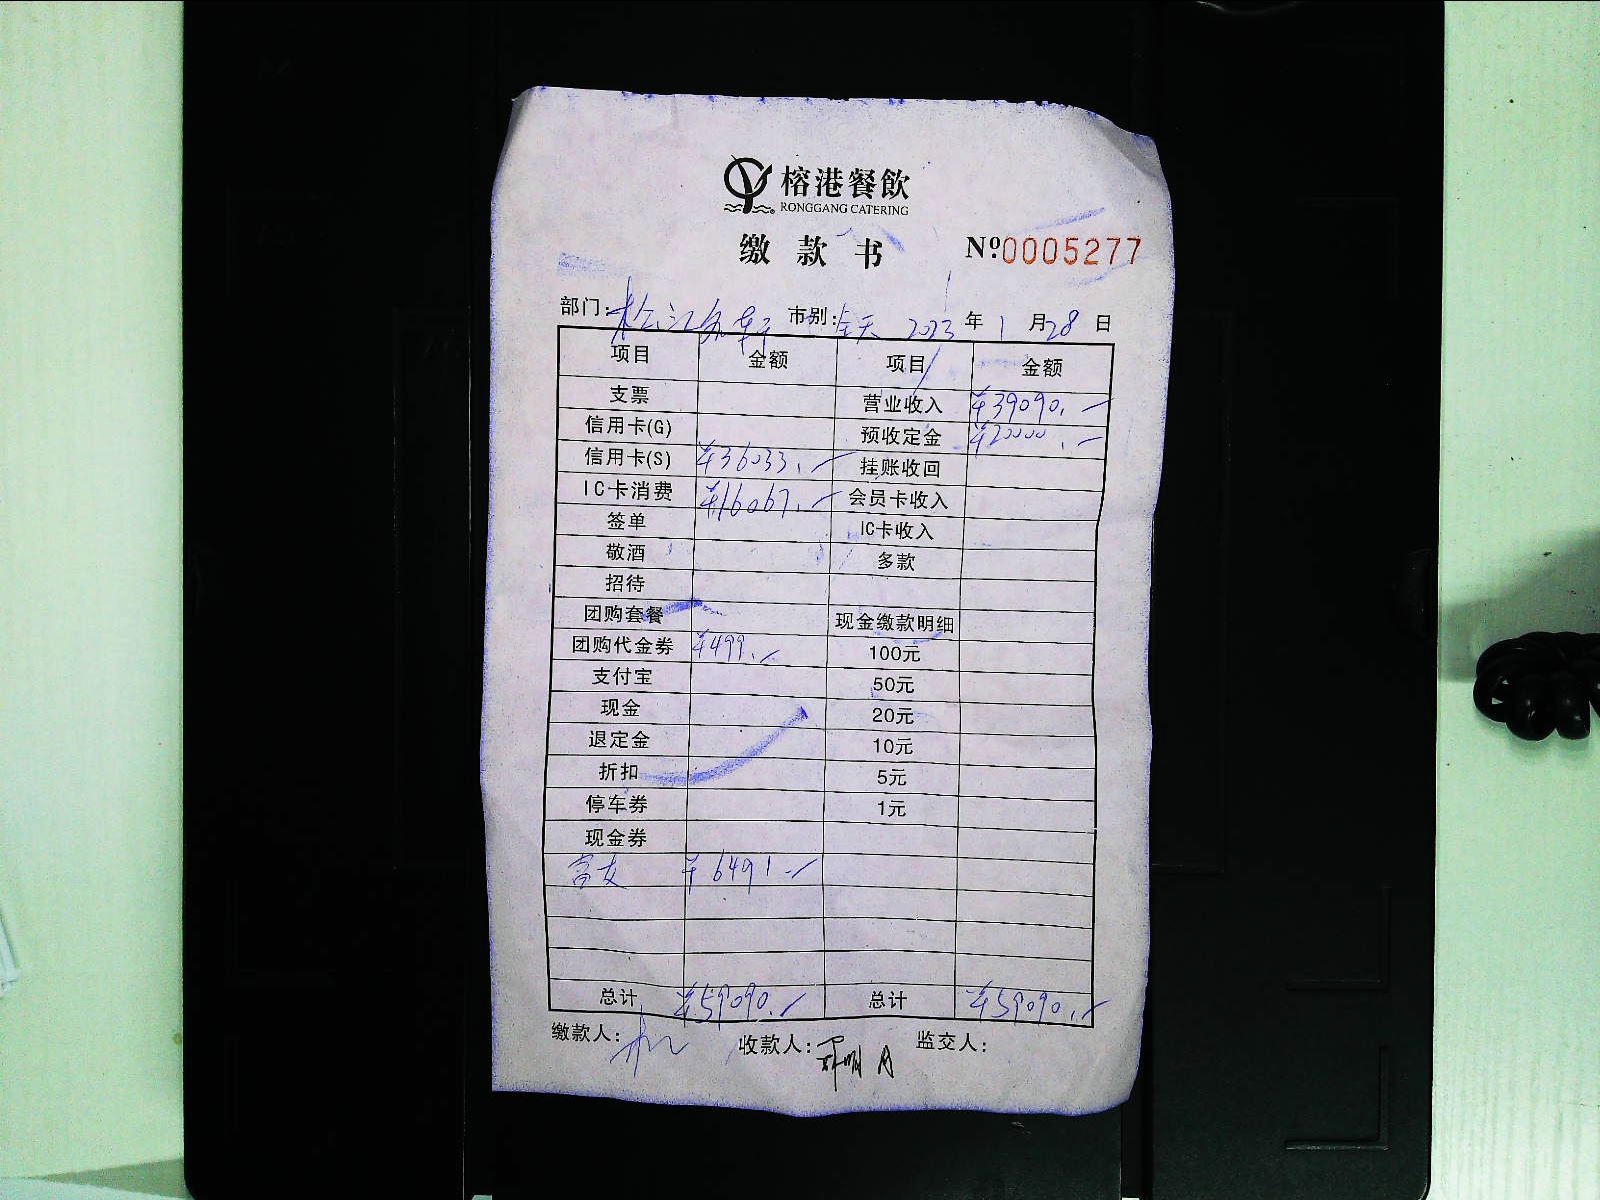 榕港餐飲
RONGGANG CATERING
缴款书 №0005277
部门: 松江名轩 市别: 全天 2023年1月28日
项目 金额 项目 金额
支票 营业收入 ¥39090.-
信用卡(G) 预收定金 ¥20000.-
信用卡(S) ¥36033.- 挂账收回
IC卡消费 ¥16067.- 会员卡收入
签单 IC卡收入
敬酒 多款
招待
团购套餐 现金缴款明细
团购代金券 ¥499.- 100元
支付宝 50元
现金 20元
退定金 10元
折扣 5元
停车券 1元
现金券
富友 ¥6491.-
总计 ¥59090.- 总计 ¥59090.-
缴款人: 收款人: 监交人: